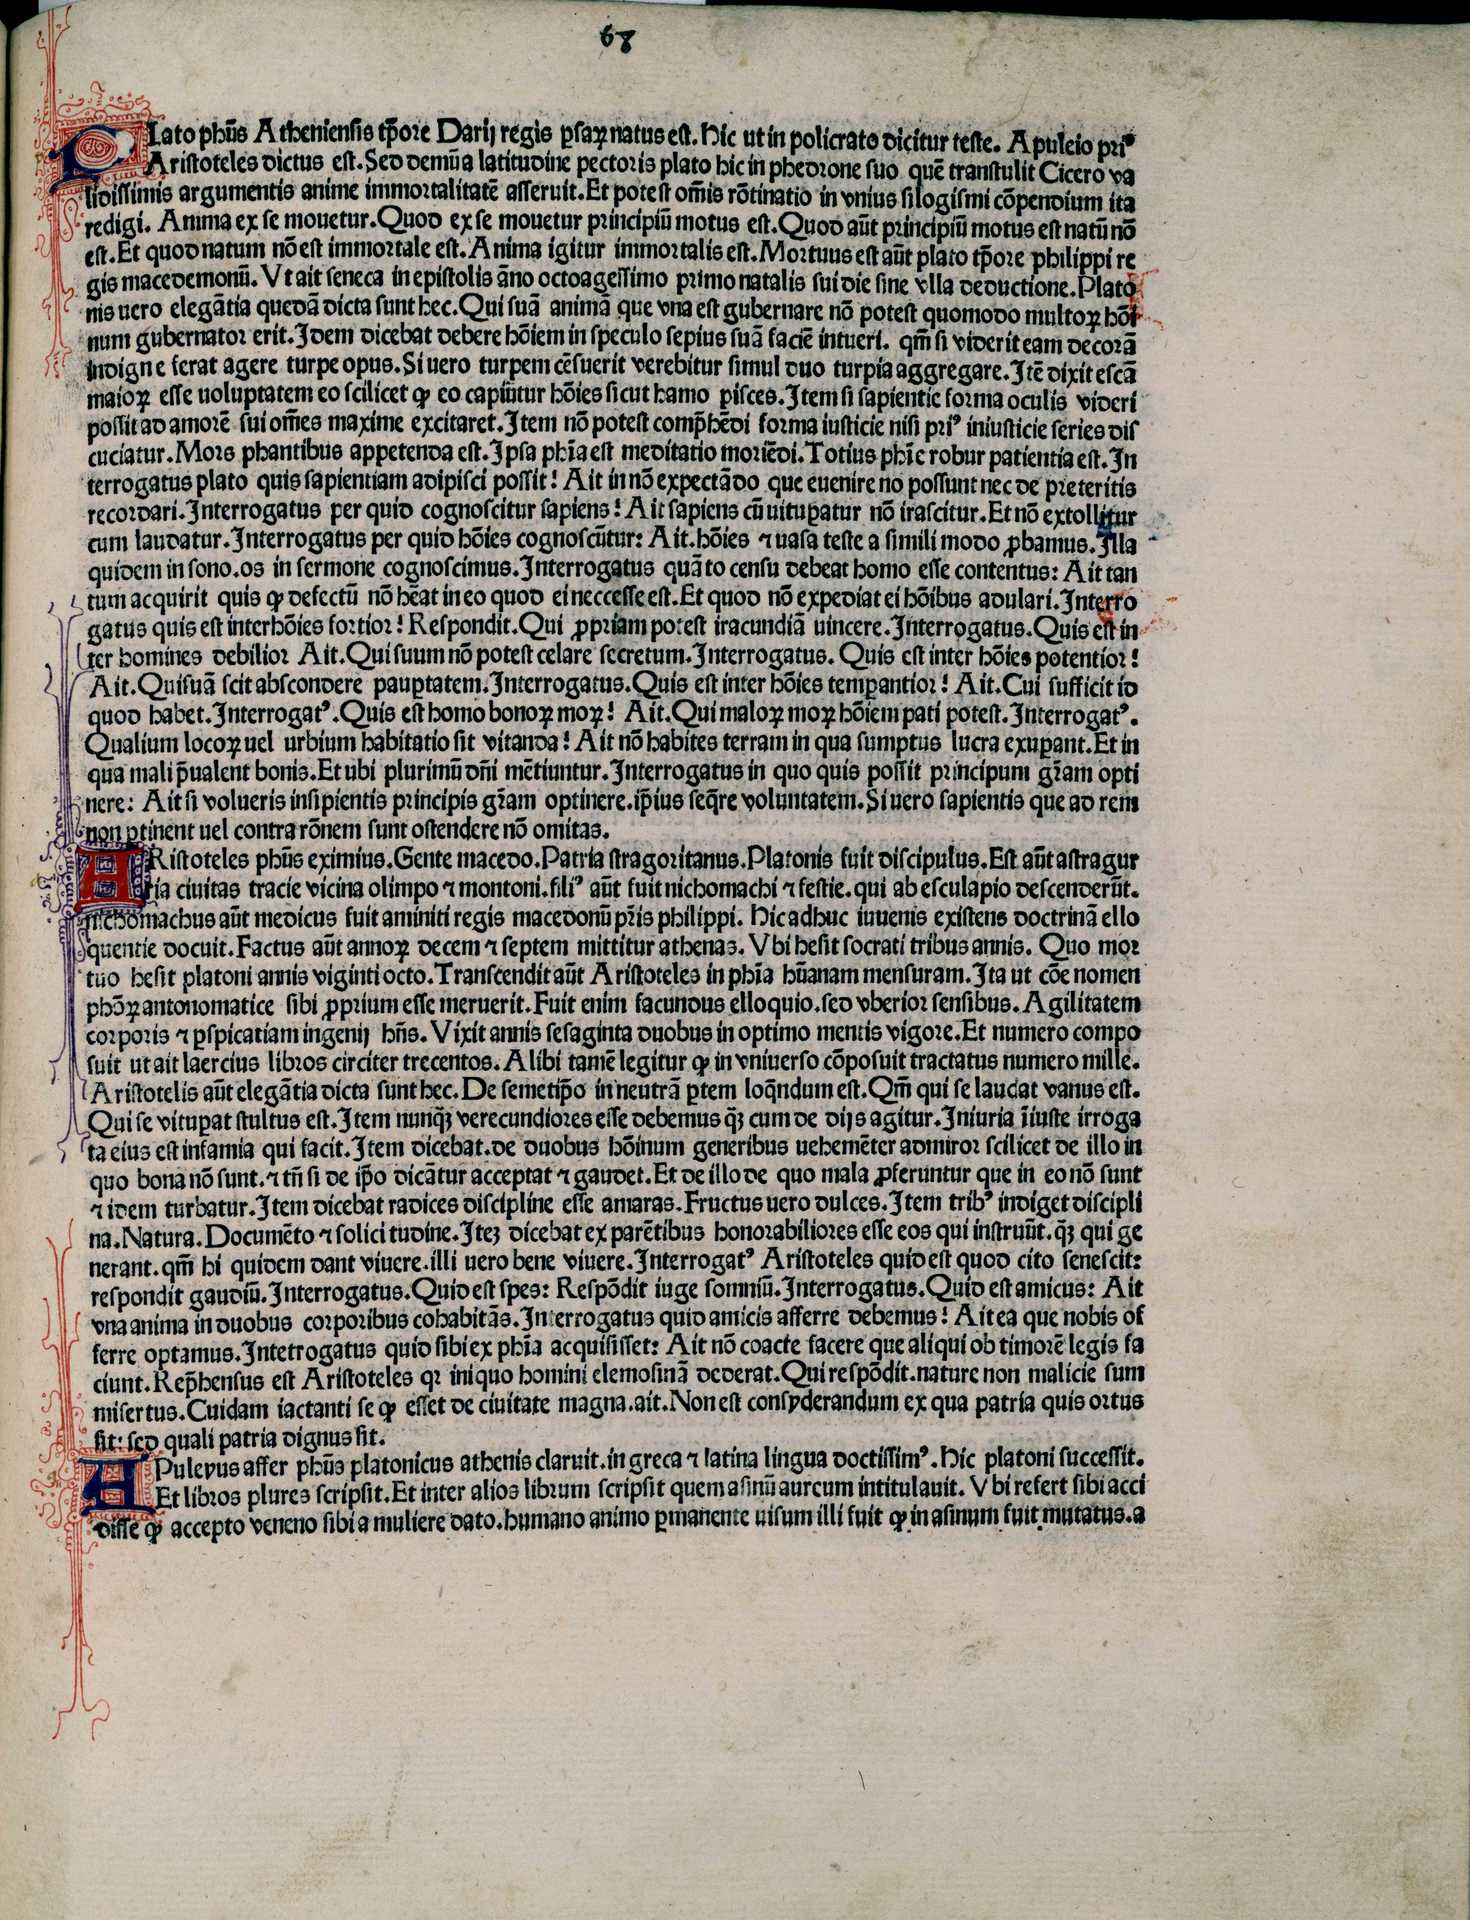 68
PLato phūs Atheniensis tp̄ore Darij regis ꝑsaꝝ natus est. Hic ut in policrato dicitur teste. Apuleio priꝰ
Aristoteles dictus est. Sed demū a latitudine pectoris plato hic in phedrone suo quē transtulit Cicero va
lidissimis argumentis anime immortalitatē asseruit. Et potest om̄is rōtinatio in vnius silogismi cōpendium ita
redigi. Anima ex se mouetur. Quod ex se mouetur principiū motus est. Quod aūt principiū motus est natū nō
est. Et quod natum nō est immortale est. Anima igitur immortalis est. Mortuus est aūt plato tp̄ore philippi re
gis macedemonū. Vt ait seneca in epistolis āno octoagessimo primo natalis sui die sine vlla deductione. Plato
nis uero elegātia quedā dicta sunt hec. Qui suā animā que vna est gubernare nō potest quomodo multoꝝ hōi
num gubernator erit. Idem dicebat debere hōiem in speculo sepius suā faciē intueri. qm̄ si viderit eam decorā
indigne ferat agere turpe opus. Si uero turpem cēsuerit verebitur simul duo turpia aggregare. Itē dixit escā
maioꝝ esse uoluptatem eo scilicet ꝙ eo capiūtur hōies sicut hamo pisces. Item si sapientie forma oculis videri
possit ad amorē sui om̄es maxime excitaret. Item nō potest comp̄hēdi forma iusticie nisi priꝰ iniusticie series dis
cuciatur. Mors phantibus appetenda est. Ipsa phīa est meditatio moriēdi. Totius phīe robur patientia est. In
terrogatus plato quis sapientiam adipisci possit! Ait in nō expectādo que euenire no possunt nec de preteritis
recordari. Interrogatus per quid cognoscitur sapiens! Ait sapiens cū uituꝑatur nō irascitur. Et nō extollitur
cum laudatur. Interrogatus per quid hōies cognoscūtur: Ait. hōies ⁊ uasa teste a simili modo ꝓbamus. Illa
quidem in sono. os in sermone cognoscimus. Interrogatus quāto censu debeat homo esse contentus: Ait tan
tum acquirit quis ꝙ defectū nō hēat in eo quod ei neccesse est. Et quod nō expediat ei hōibus adulari. Interro
gatus quis est inter hōies fortior! Respondit. Qui ꝓpriam potest iracundiā uincere. Interrogatus. Quis est in
ter homines debilior Ait. Qui suum nō potest celare secretum. Interrogatus. Quis est inter hōies potentior!
Ait. Qui suā scit abscondere pauꝑtatem. Interrogatus. Quis est inter hōies temꝑantior! Ait. Cui sufficit id
quod habet. Interrogatꝰ. Quis est homo bonoꝝ moꝝ! Ait. Qui maloꝝ moꝝ hōiem pati potest. Interrogatꝰ.
Qualium locoꝝ uel urbium habitatio sit vitanda! Ait nō habites terram in qua sumptus lucra exuꝑant. Et in
qua mali p̄ualent bonis. Et ubi plurimū dn̄i mētiuntur. Interrogatus in quo quis possit principum gr̄am opti
nere: Ait si volueris insipientis principis gr̄am optinere. ip̄ius seq̄re voluntatem. Si uero sapientis que ad rem
non ꝑtinent uel contra rōnem sunt ostendere nō omitas.
ARistoteles phūs eximius. Gente macedo. Patria stragoritanus. Platonis fuit discipulus. Est aūt astragur
ria ciuitas tracie vicina olimpo ⁊ montoni. filiꝰ aūt fuit nichomachi ⁊ festie. qui ab esculapio descenderūt.
nichomachus aūt medicus fuit aminiti regis macedonū pr̄is philippi. Hic adhuc iuuenis existens doctrinā ello
quentie docuit. Factus aūt annoꝝ decem ⁊ septem mittitur athenas. Vbi hesit socrati tribus annis. Quo mor
tuo hesit platoni annis viginti octo. Transcendit aūt Aristoteles in phīa hūanam mensuram. Ita ut cōe nomen
phōꝝ antonomatice sibi ꝓprium esse meruerit. Fuit enim facundus elloquio. sed vberior sensibus. Agilitatem
corporis ⁊ ꝑspicatiam ingenij hn̄s. Vixit annis sesaginta duobus in optimo mentis vigore. Et numero compo
suit ut ait laercius libros circiter trecentos. Alibi tamē legitur ꝙ in vniuerso cōposuit tractatus numero mille.
Aristotelis aūt elegātia dicta sunt hec. De semetip̄o in neutrā ꝑtem loq̄ndum est. Qm̄ qui se laudat vanus est.
Qui se vituꝑat stultus est. Item nunqꝫ verecundiores esse debemus qꝫ cum de dijs agitur. Iniuria īiuste irroga
ta eius est infamia qui facit. Item dicebat. de duobus hōinum generibus uehemēter admiror scilicet de illo in
quo bona nō sunt. ⁊ tn̄ si de ip̄o dicātur acceptat ⁊ gaudet. Et de illo de quo mala ꝓferuntur que in eo nō sunt
⁊ idem turbatur. Item dicebat radices discipline esse amaras. Fructus uero dulces. Item tribꝰ indiget discipli
na. Natura. Documēto ⁊ solicitudine. Iteꝫ dicebat ex parētibus honorabiliores esse eos qui instruūt. qꝫ qui ge
nerant. qm̄ hi quidem dant viuere. illi uero bene viuere. Interrogatꝰ Aristoteles quid est quod cito senescit:
respondit gaudiū. Interrogatus. Quid est spes: Respōdit iuge somniū. Interrogatus. Quid est amicus: Ait
vna anima in duobus corporibus cohabitās. Interrogatus quid amicis afferre debemus! Ait ea que nobis of
ferre optamus. Intetrogatus quid sibi ex phīa acquisisset: Ait nō coacte facere que aliqui ob timorē legis fa
ciunt. Rep̄hensus est Aristoteles qꝛ iniquo homini elemosinā dederat. Qui respōdit. nature non malicie sum
misertus. Cuidam iactanti se ꝙ esset de ciuitate magna. ait. Non est consyderandum ex qua patria quis ortus
sit: sed quali patria dignus sit.
APuleyus affer phūs platonicus athenis claruit. in greca ⁊ latina lingua doctissimꝰ. Hic platoni successit.
Et libros plures scripsit. Et inter alios librum scripsit quem asinū aureum intitulauit. Vbi refert sibi acci
disse ꝙ accepto veneno sibi a muliere dato. humano animo ꝑmanente uisum illi fuit ꝙ in asinum fuit mutatus. a